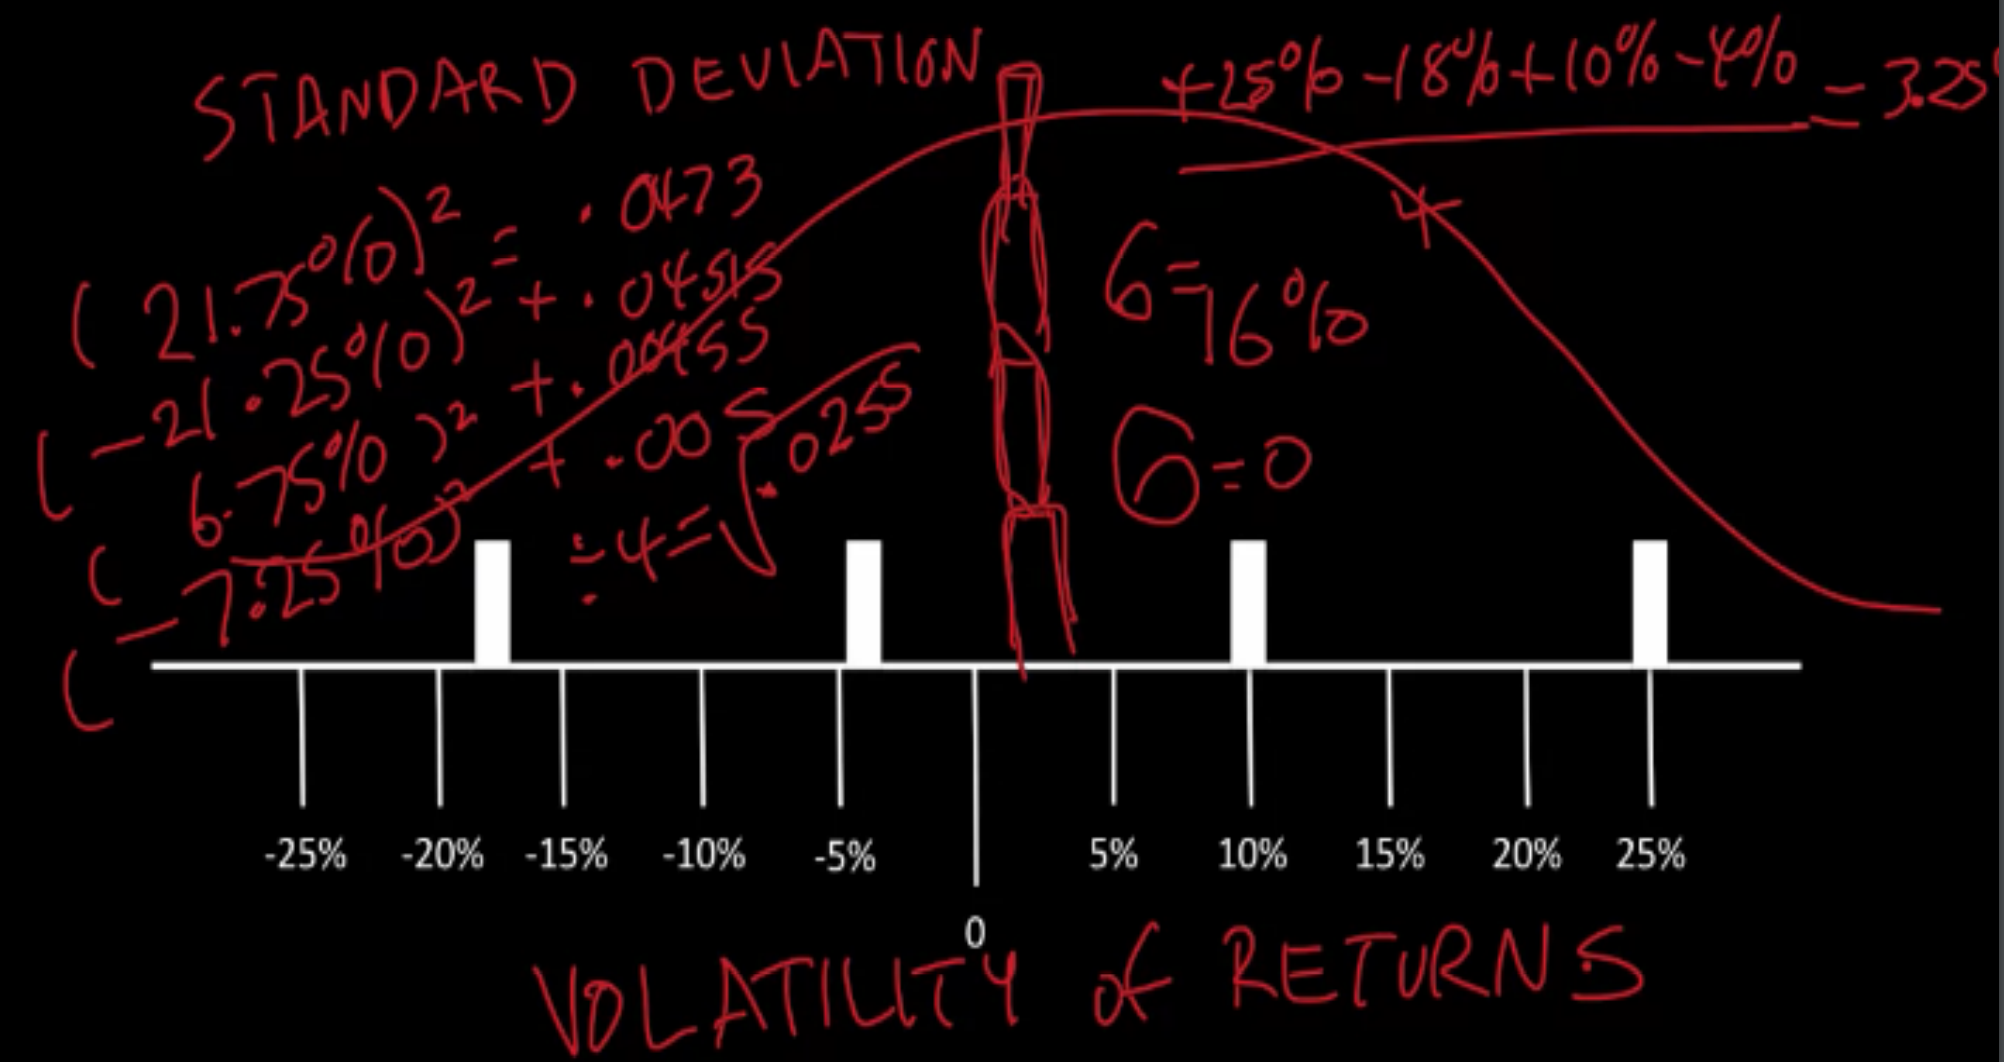 STANDARD DEVIATION
+25% -18% +10% -4% = 3.25
4
(21.75%)² = .0473
(-21.25%)² + .04515
(6.75%)² + .00455
(-7.25%)² + .005
÷4 = √.0255
6=16%
6=0
-25% -20% -15% -10% -5% 5% 10% 15% 20% 25%
0
VOLATILITY of RETURNS